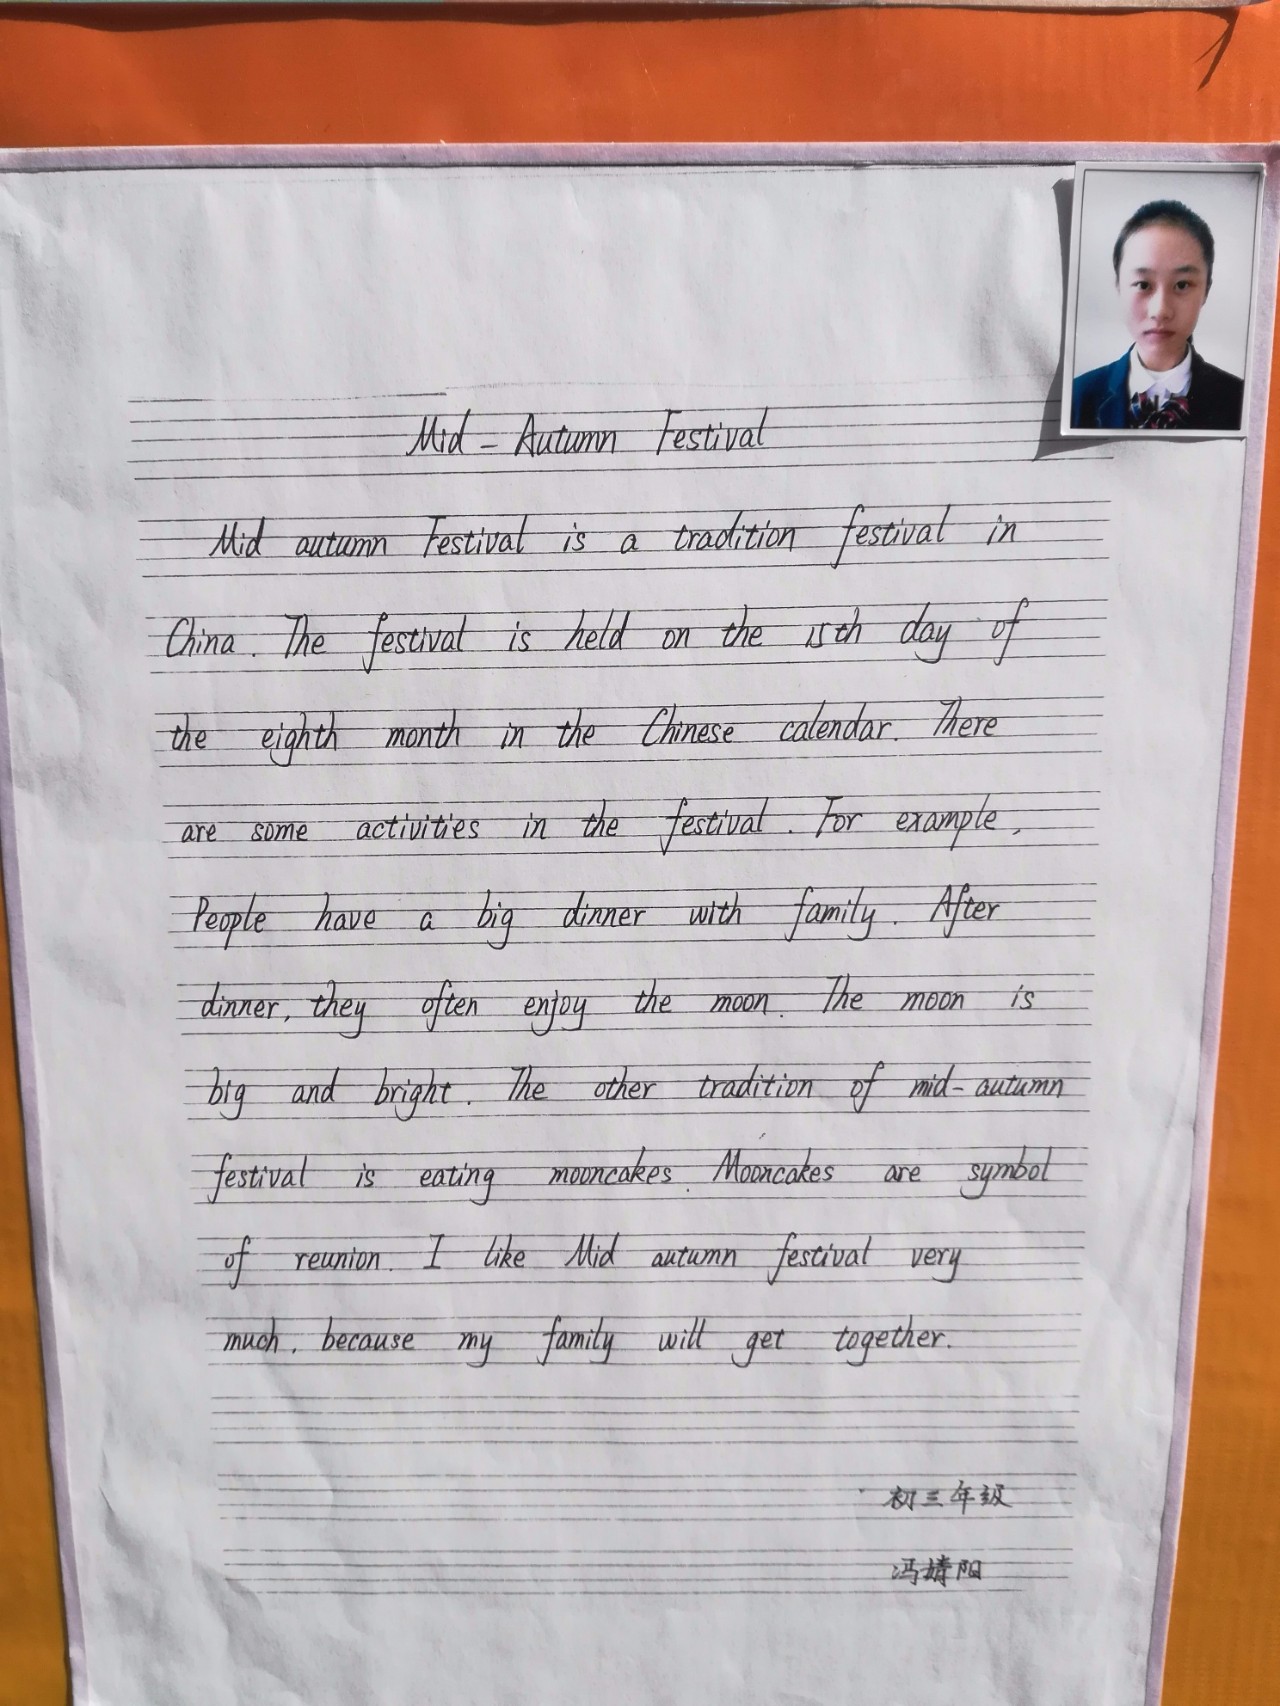 Mid-Autumn Festival
Mid autumn Festival is a tradition festival in
China. The festival is held on the 15th day of
the eighth month in the Chinese calendar. There
are some activities in the festival. For example,
People have a big dinner with family. After
dinner, they often enjoy the moon. The moon is
big and bright. The other tradition of mid-autumn
festival is eating mooncakes. Mooncakes are symbol
of reunion. I like Mid autumn festival very
much, because my family will get together.
初三年级
冯婧阳